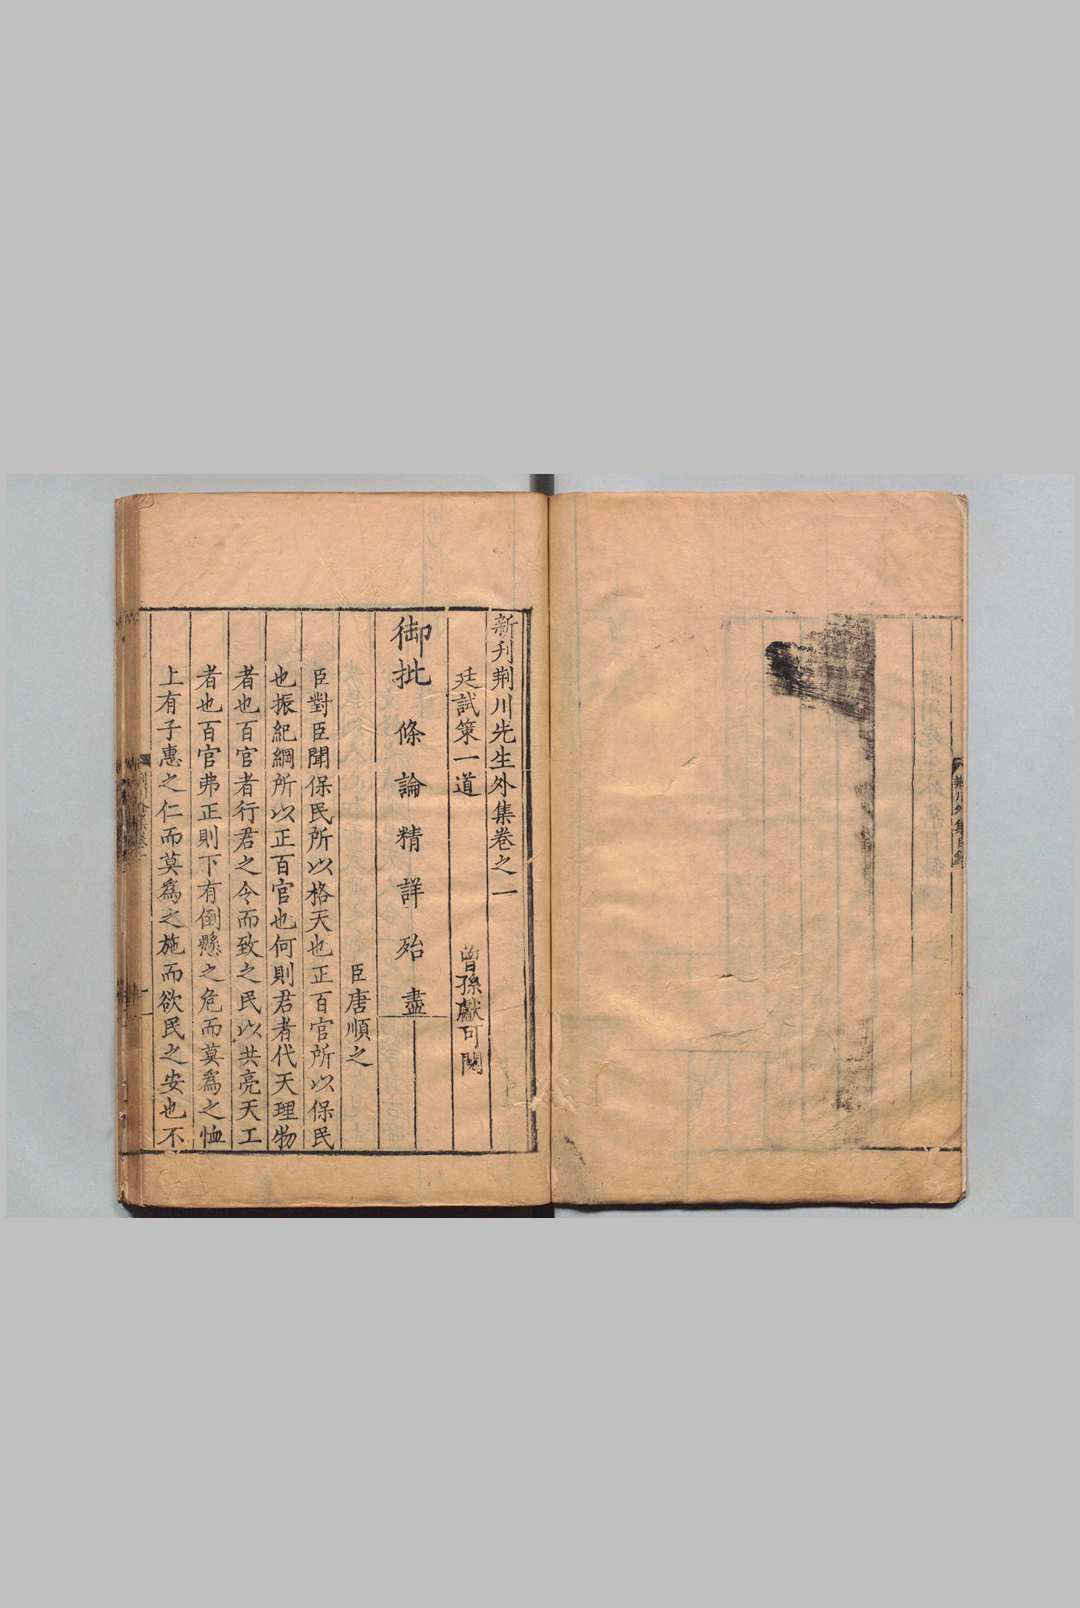 新刋荆川先生外集卷之一
廷試策一道
曾孫獻可閱
御批條論精詳殆盡
臣唐順之
臣對臣聞保民所以格天也正百官所以保民
也振紀綱所以正百官也何則君者代天理物
者也百官者行君之令而致之民以共亮天工
者也百官弗正則下有倒懸之危而莫爲之恤
上有子惠之仁而莫爲之施而欲民之安也不